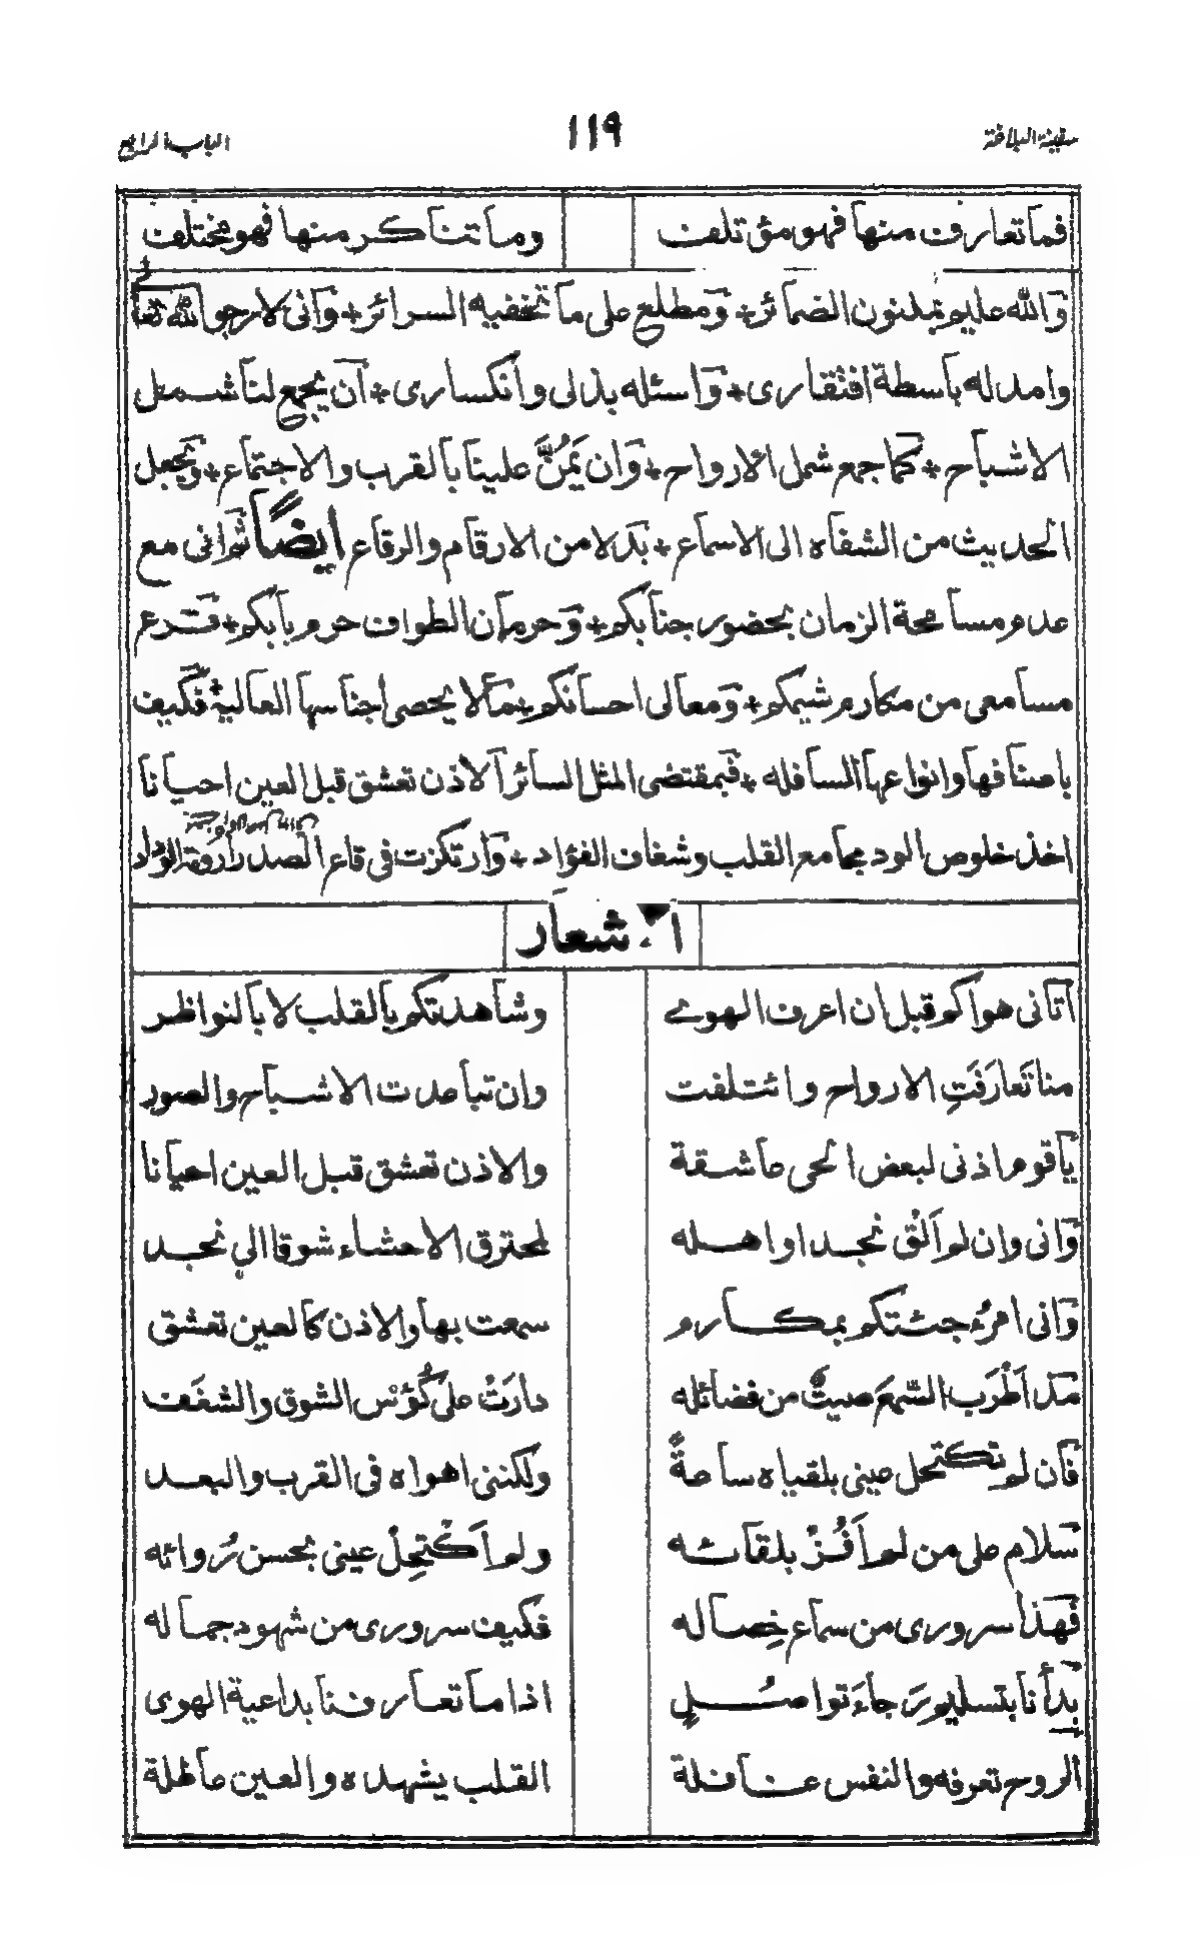 سفينة البلاغة ١١٩ الباب الرابع
فما تعارف منها فهو مؤتلف وما تناكر منها فهو مختلف
والله عليم بمكنون الضمائر + ومطلع على ما تخفيه السرائر + وانى لارجو الله تعا
وامد له باسطة افتقارى + واسئله بذلى وانكسارى + ان يجمع لنا شمل
الاشباح + كما جمع شمل الارواح + وان يَمُنَّ علينا بالقرب والاجتماع + ويجعل
الحديث من الشفاه الى الاسماع + بدلا من الارقام والرقاع ايضًا ثم انى مع
عدم مسامحة الزمان بحضور جنابكم + وحرمان الطواف حرم بابكم + قد قرع
مسامعى من مكارم شيمكم + ومعالى احسانكم + ما لا يحصى اجناسها العالية فكيف
باصنافها وانواعها السافله + فبمقتضى المثل السائر الاذن تعشق قبل العين احيانا
اخذ خلوص الود مجامع القلب وشغاف الفؤاد + وارتكزت فى قاع الصدر ارومة الوداد
اشعار
اتانى هواكم قبل ان اعرف الهوے وشاهدتكم بالقلب لا بالنواظر
منا تَعارَفَتِ الارواح وائتلفت وان تباعدت الاشباح والصور
يا قوم اذنى لبعض الحى عاشقة والاذن تعشق قبل العين احيانا
وانى وان لم اَلْق نجدا واهله لمحترق الاحشاء شوقا الي نجد
وانى امرُء جئتكم بمكارم سمعت بها والاذن كالعين تعشق
مذ اَطْرَب السّمعَ صيتٌ من فضائله دارَتْ على كُؤسْ الشوق والشغَف
فان لم تكتحل عينى بلقياه ساعةً ولكننى اهواه فى القرب والبعد
سلام على من لم اَفُزْ بلقائه ولم اَكْتحِلْ عينى بحسن رُوائه
فهذا سرورى من سماع خِصاله فكيف سرورى من شهود جماله
بدأنا بتسليم رَجاءَ تواصُلٍ اذا ما تعارفنا بداعية الهوى
الروح تعرفه والنفس عنا فلة القلب يشهده والعين ماطلة